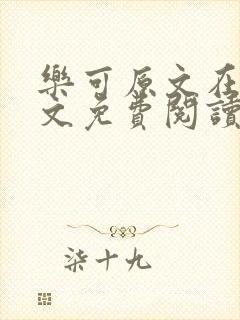 樂可原文在
文免費閱讀
柒十九